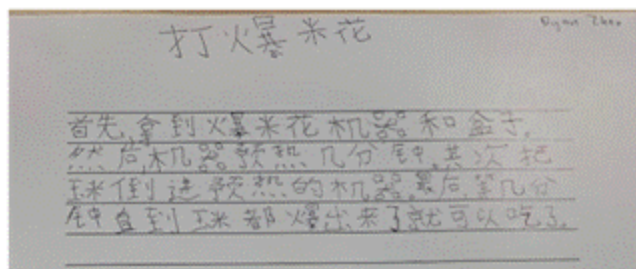 打爆米花
Ryan Zhao
首先,拿到爆米花机器和盒子.
然后,机器预热几分钟.其次把
玉米倒进预热的机器.最后,等几分
钟直到玉米都爆出来了就可以吃了.